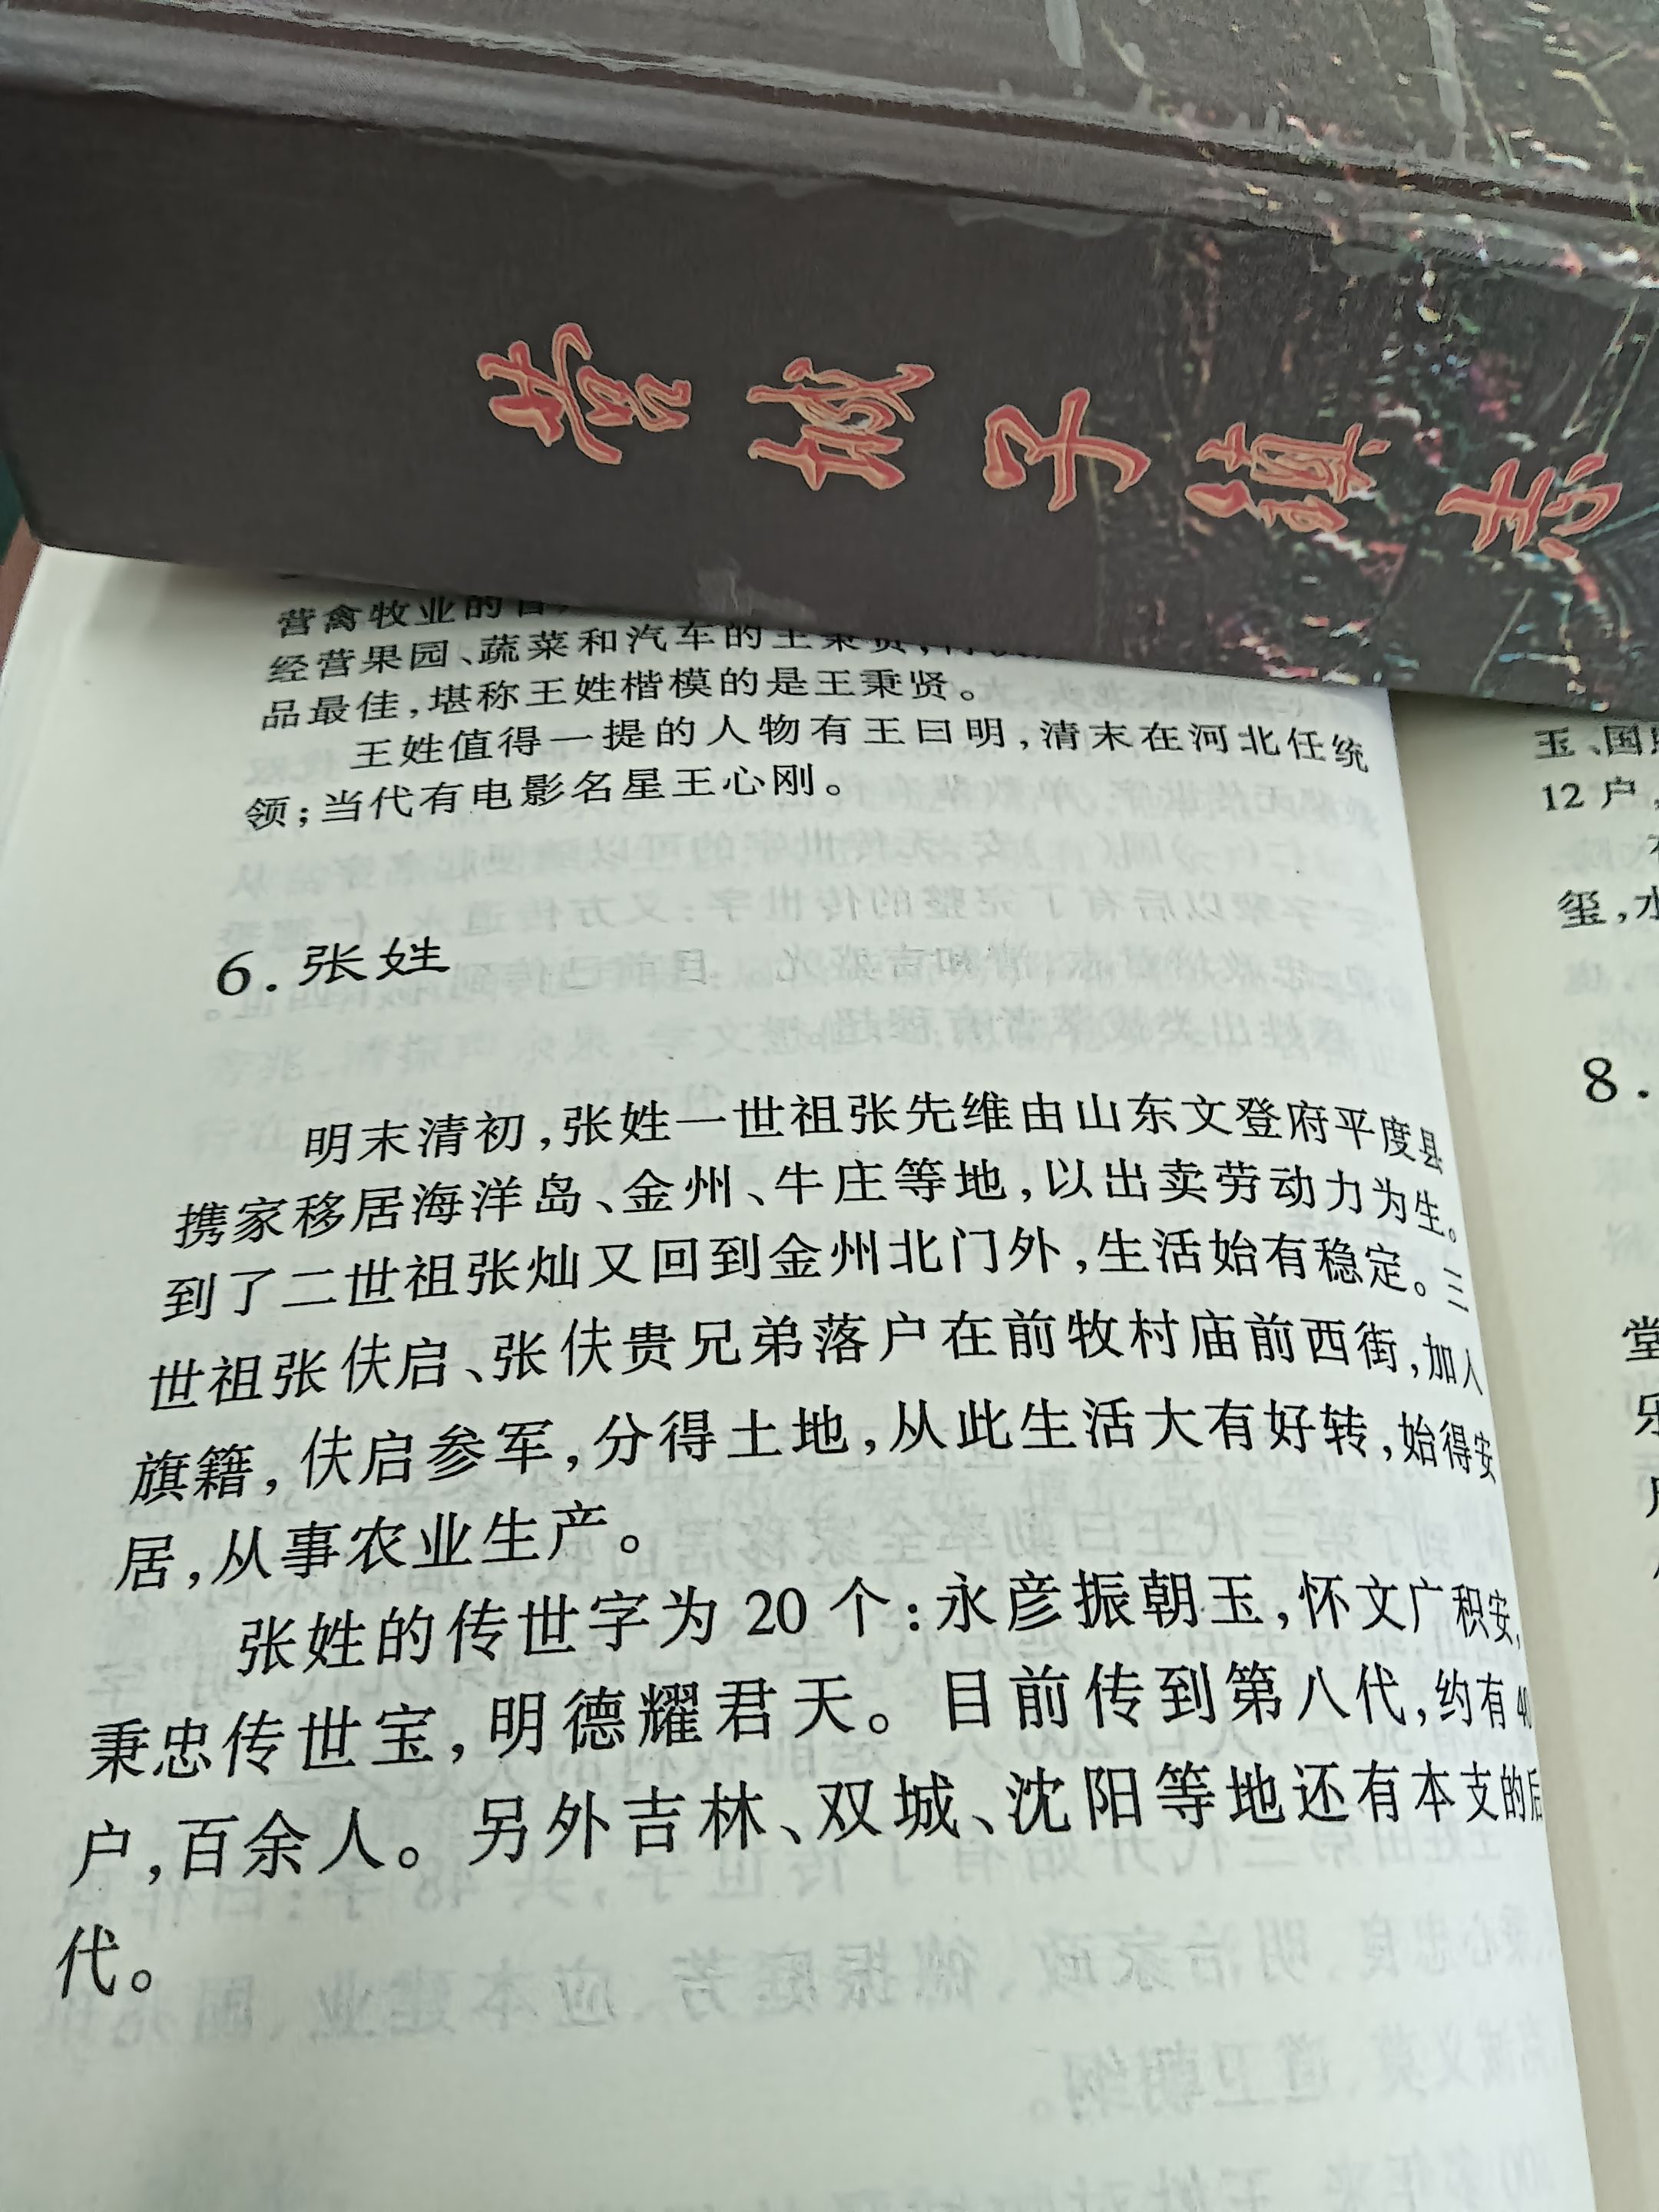 营城子镇志
营禽牧业的
经营果园、蔬菜和汽车的王秉贤,
品最佳,堪称王姓楷模的是王秉贤。
王姓值得一提的人物有王曰明,清末在河北任统
领;当代有电影名星王心刚。
6. 张姓
明末清初,张姓一世祖张先维由山东文登府平度县
携家移居海洋岛、金州、牛庄等地,以出卖劳动力为生。
到了二世祖张灿又回到金州北门外,生活始有稳定。三
世祖张伕启、张伕贵兄弟落户在前牧村庙前西街,加入
旗籍,伕启参军,分得土地,从此生活大有好转,始得安
居,从事农业生产。
张姓的传世字为 20 个:永彦振朝玉,怀文广积安,
秉忠传世宝,明德耀君天。目前传到第八代,约有 40
户,百余人。另外吉林、双城、沈阳等地还有本支的后
代。
玉、国
12 户,
玺,水
8.
堂
乐